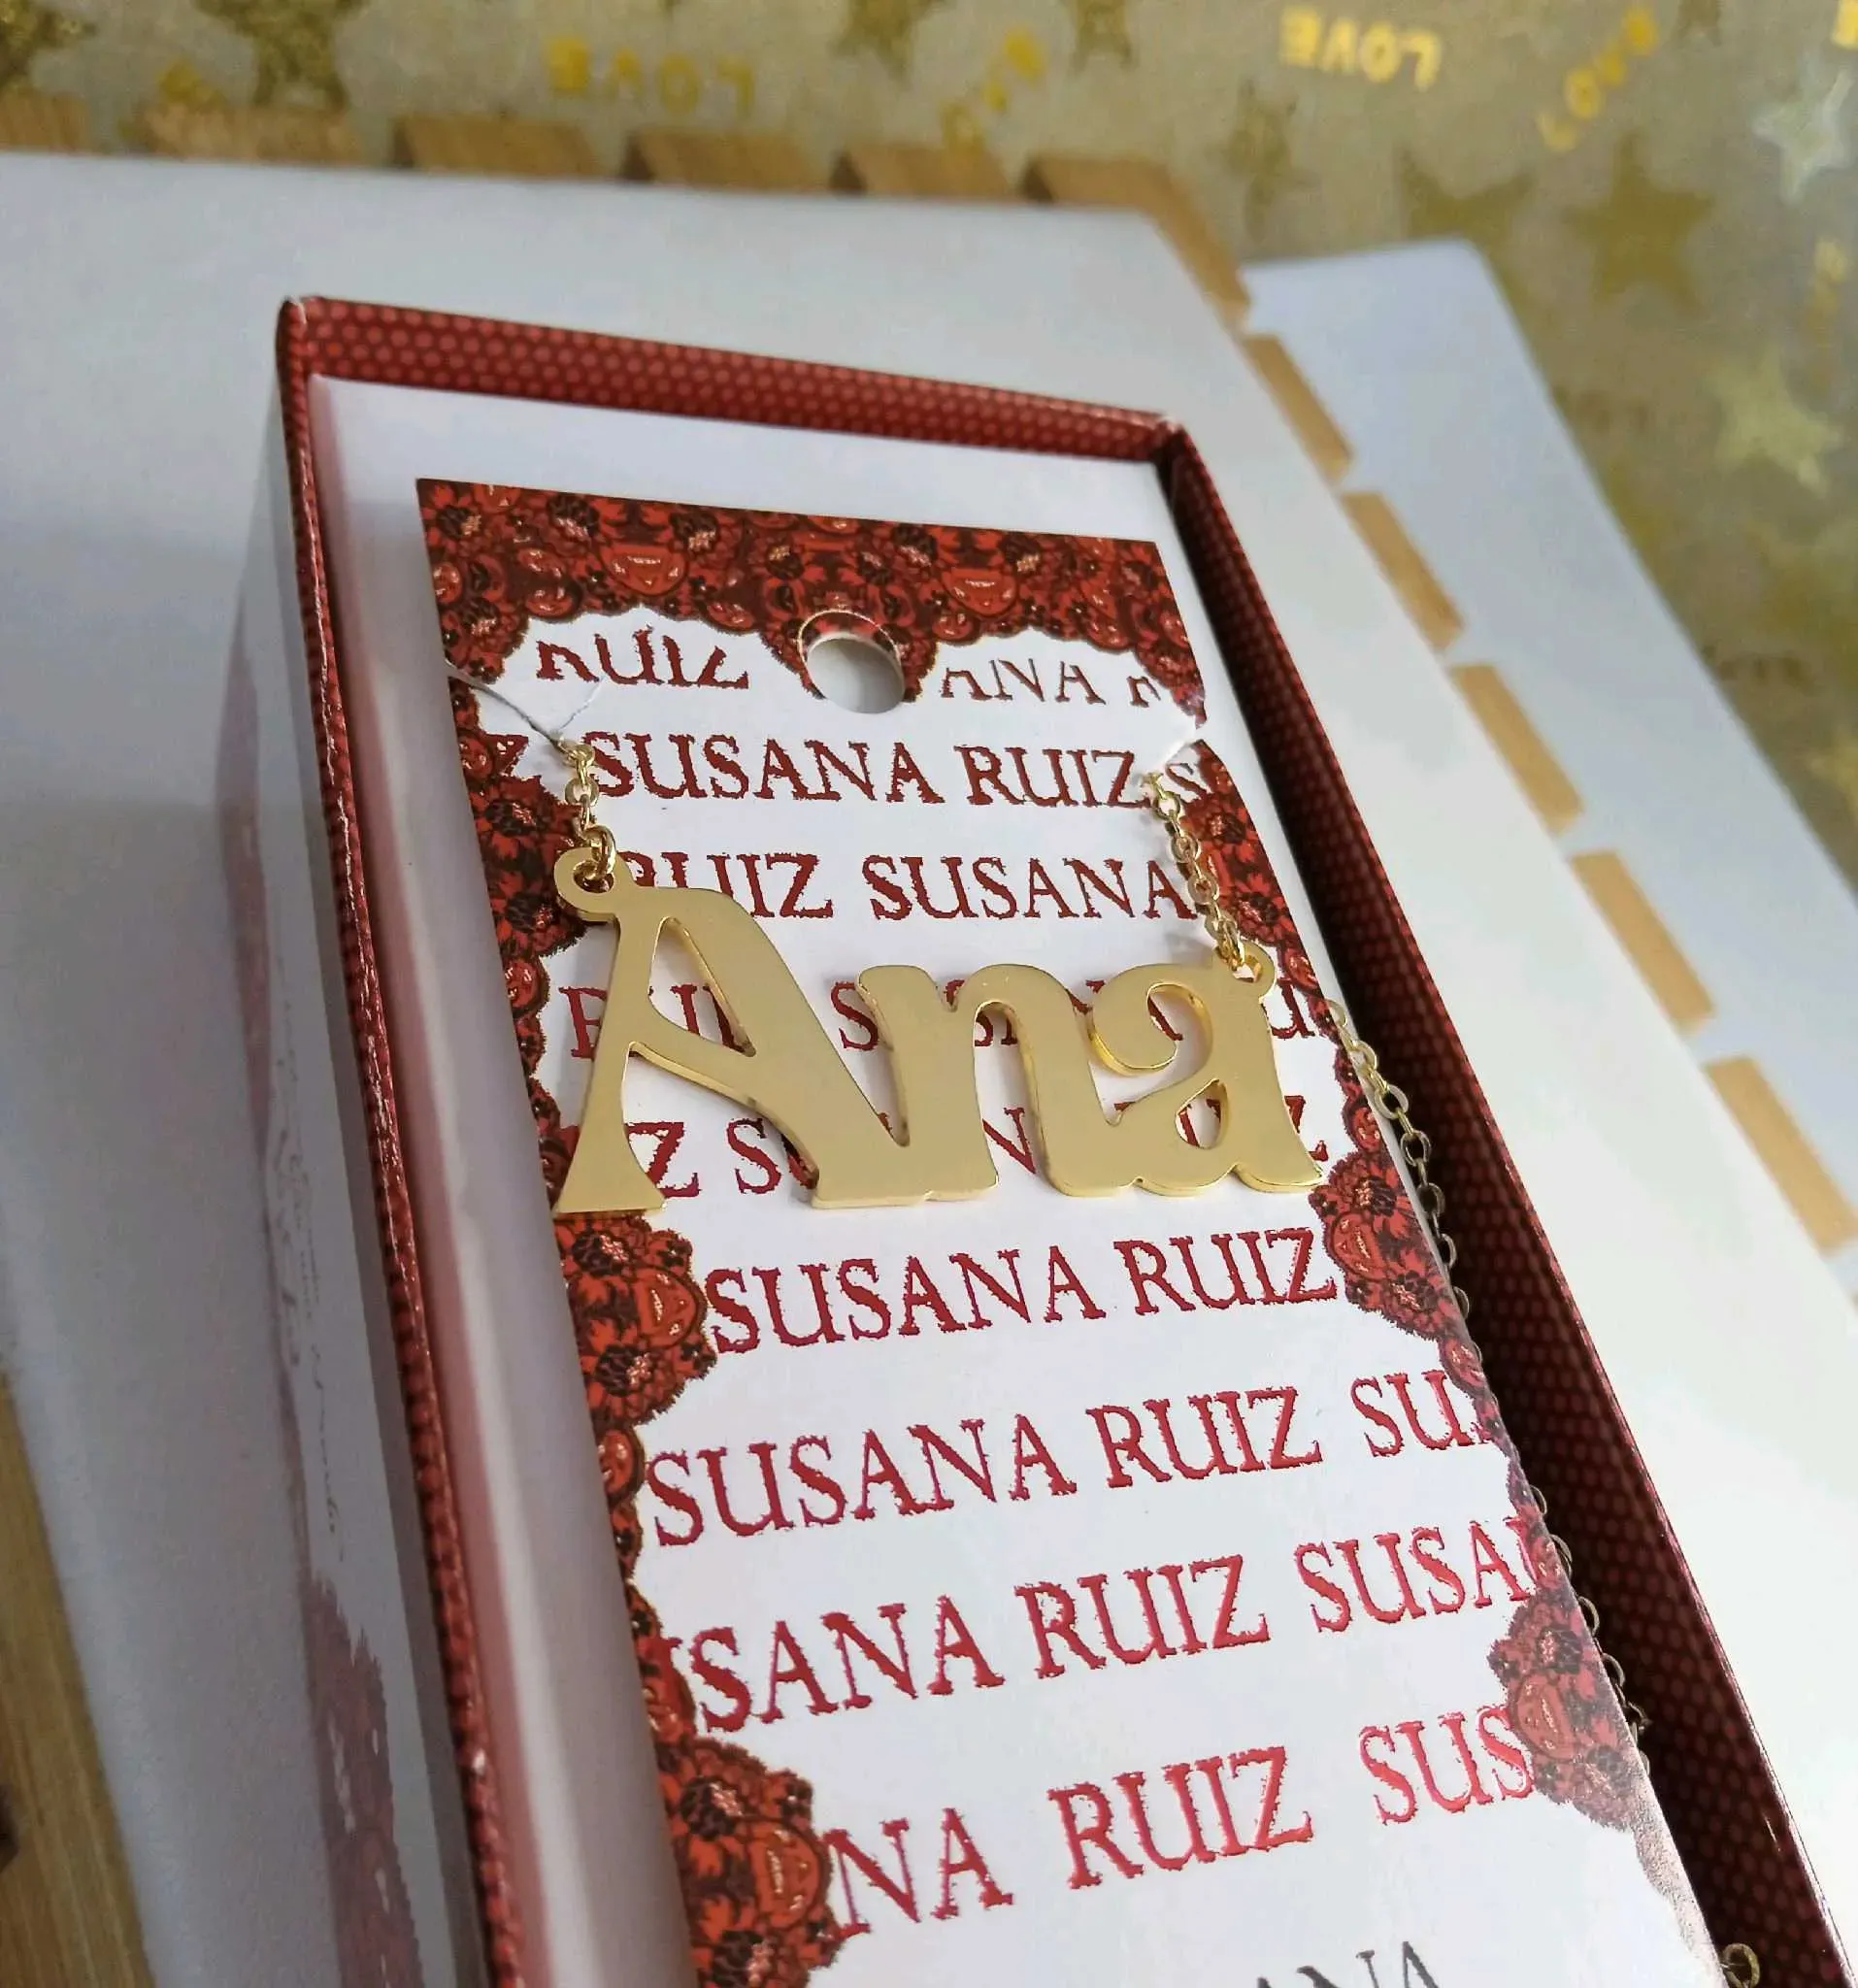 LOVE
LOVE
RUIZ
SUSANA RUIZ S
RUIZ SUSANA
Ana
SUSANA RUIZ
SUSANA RUIZ SU
SANA RUIZ SUSA
NA RUIZ SUS
ANA